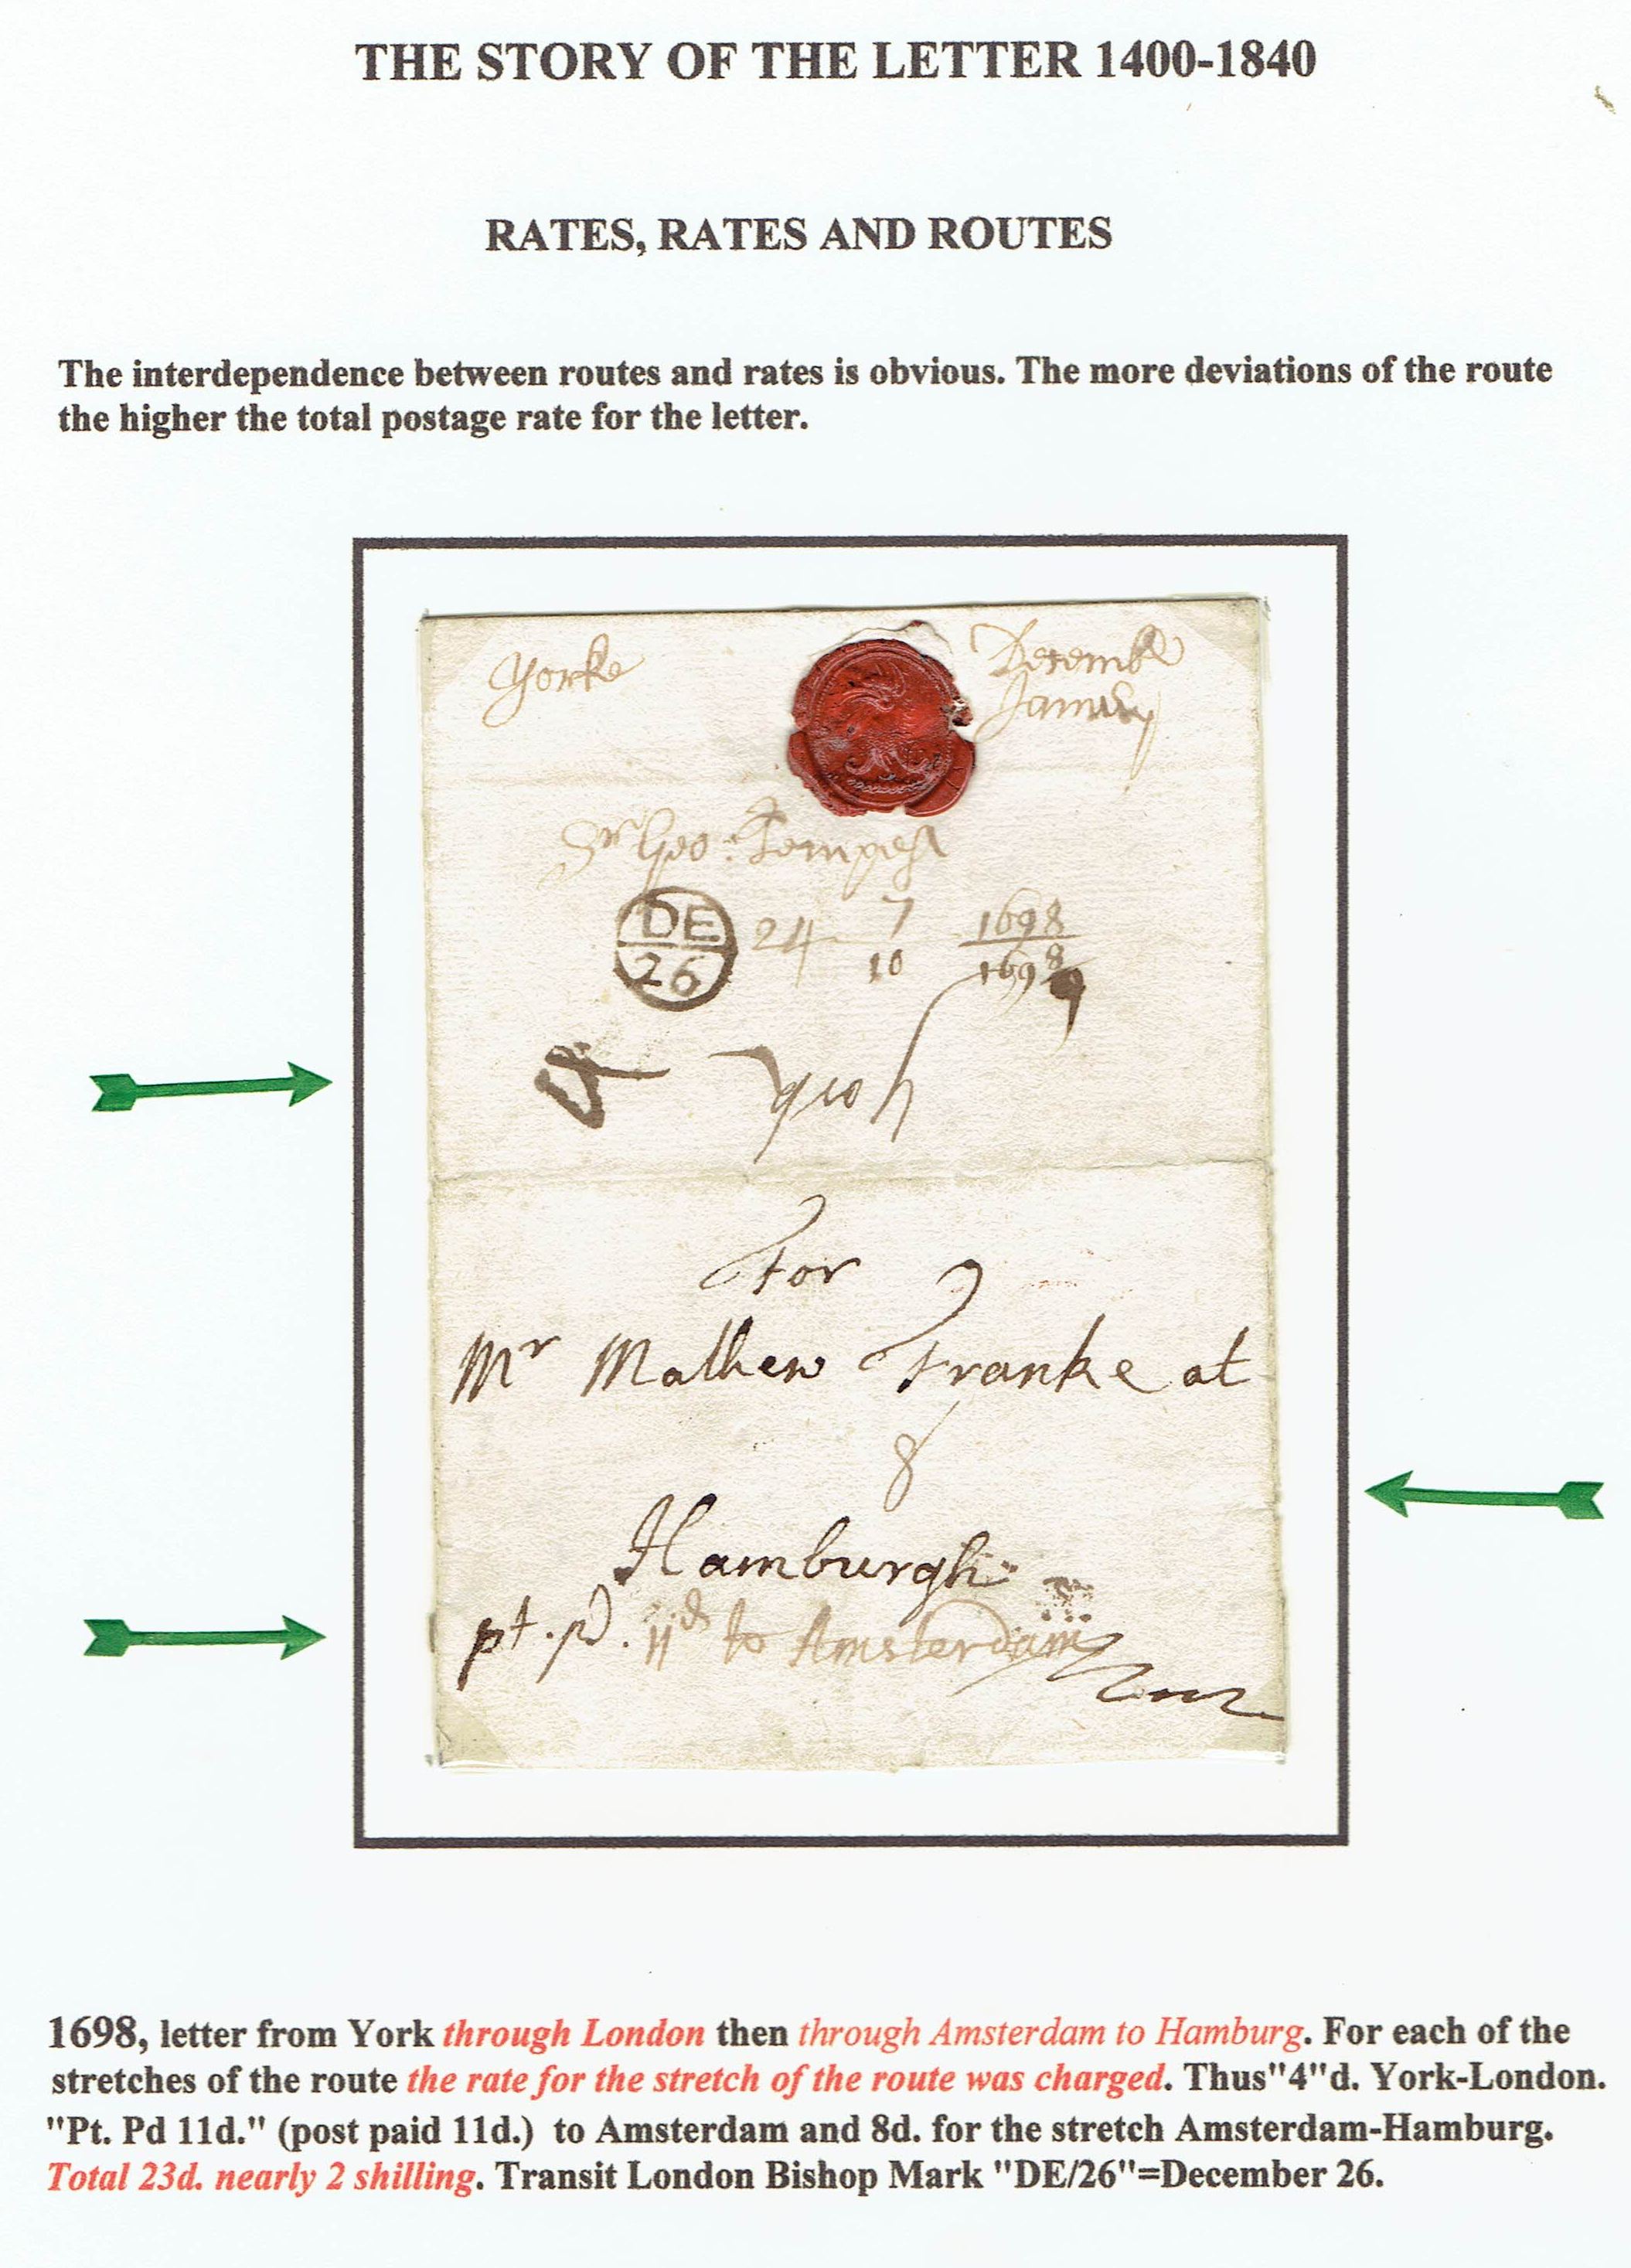 THE STORY OF THE LETTER 1400-1840
RATES, RATES AND ROUTES
The interdependence between routes and rates is obvious. The more deviations of the route
the higher the total postage rate for the letter.
Yorke
Decemb
Sr Geo: Tempest
DE
26
24
7
1698
10
For
Mr Mathew Franke at
8
Hamburgh
pt. pd. 11d to Amsterdam
1698, letter from York through London then through Amsterdam to Hamburg. For each of the
stretches of the route the rate for the stretch of the route was charged. Thus"4"d. York-London.
"Pt. Pd 11d." (post paid 11d.) to Amsterdam and 8d. for the stretch Amsterdam-Hamburg.
Total 23d. nearly 2 shilling. Transit London Bishop Mark "DE/26"=December 26.